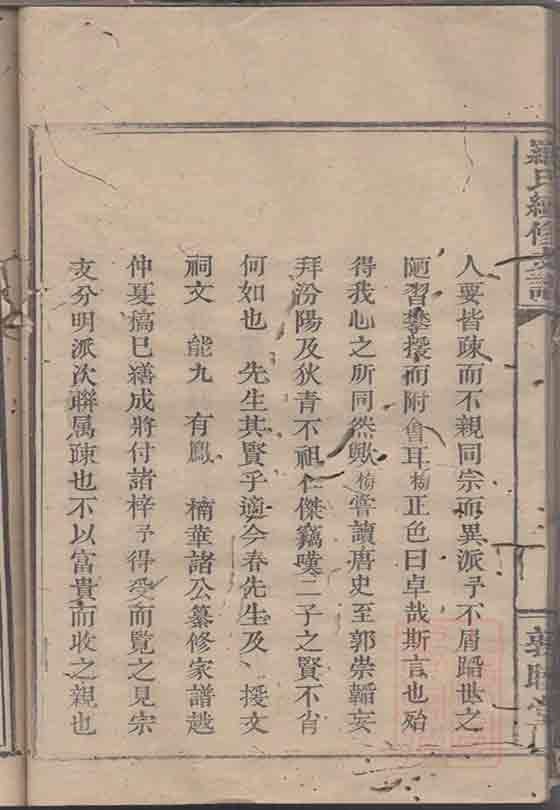 羅氏續修支譜
敦睦堂
人要皆疎而不親同宗而異派予不屑蹈世之
陋習攀援而附會耳楊正色曰卓哉斯言也殆
得我心之所同然歟楊嘗讀唐史至郭崇韜妄
拜汾陽及狄青不祖仁傑竊嘆二子之賢不肖
何如也 先生其賢乎適今春先生及 援文
祠文 能九 有鳳 楠華諸公纂修家譜越
仲夏稿已繕成將付諸梓予得受而覽之見宗
支分明派次聯属疎也不以富貴而收之親也